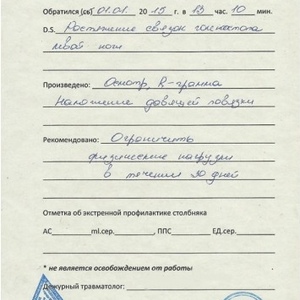 Обратился (ся) 01.01. 2015 г. в 13 час. 10 мин.
D.S. Растяжение связок голеностопа
левой ноги
Произведено: Осмотр, R-грамма
Наложение давящей повязки
Рекомендовано: Ограничить
физические нагрузки
в течении 30 дней
Отметка об экстренной профилактике столбняка
АС_____ml.сер.______, ППС_______ЕД.сер.____
* не является освобождением от работы
Дежурный травматолог: